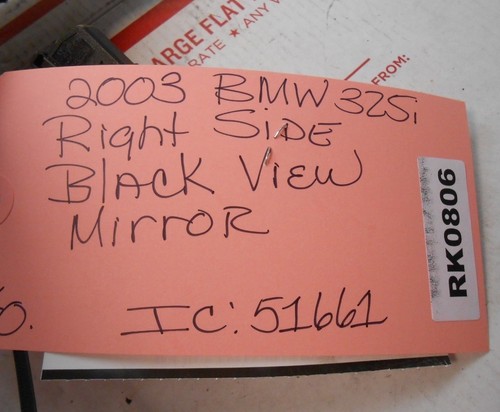 ARGE FLAT
RATE ★ ANY W
FROM:
2003 BMW 325i
Right SIDE
BLACK VIEW
MIRROR
RK0806
O.
IC: 51661